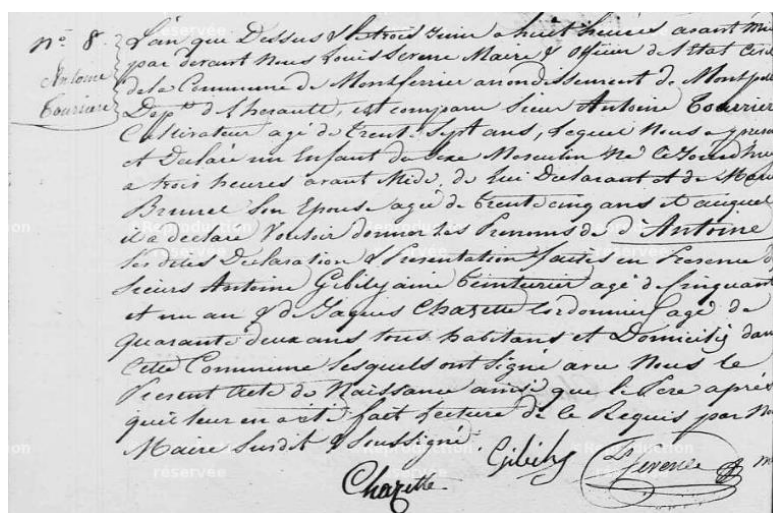 n.° 8.
Antoine
Tourriere
L'an que Dessus & le trois Juin a huit heures avant mi
par devant Nous Louis Serene Maire & Officier de l'Etat Civil
de la Commune de Montferrier arrondissement de Montpell
Dep.t de l'herault, est comparu Sieur Antoine Tourrier
Cultivateur agé de Trente Sept ans, Lequel Nous a presen
et Declaré un Enfant du Sexe Masculin Né Ce Jourdhui
a trois heures avant Midi, de lui Declarant et de Marie
Brunel Son Epouse agée de trente cinq ans & auquel
il a declaré Vouloir donner les Prenoms de d'Antoine
les dites Declaration & Presentation faites en Presence d
Sieurs Antoine Gibily ainé Teinturier agé de Cinquant
et un an & de Jaques Chazette Cordonnier agé de
quarante deux ans tous habitans et Domiciliés dan
Cette Commune Lesquels ont Signé avec Nous le
Present Acte de Naissance ainsi que le Pere après
qu'il leur en a eté fait Lecture de le Requis par N
Maire Susdit & Soussigné.
Gibily
Ls Serene
m
Chazette.